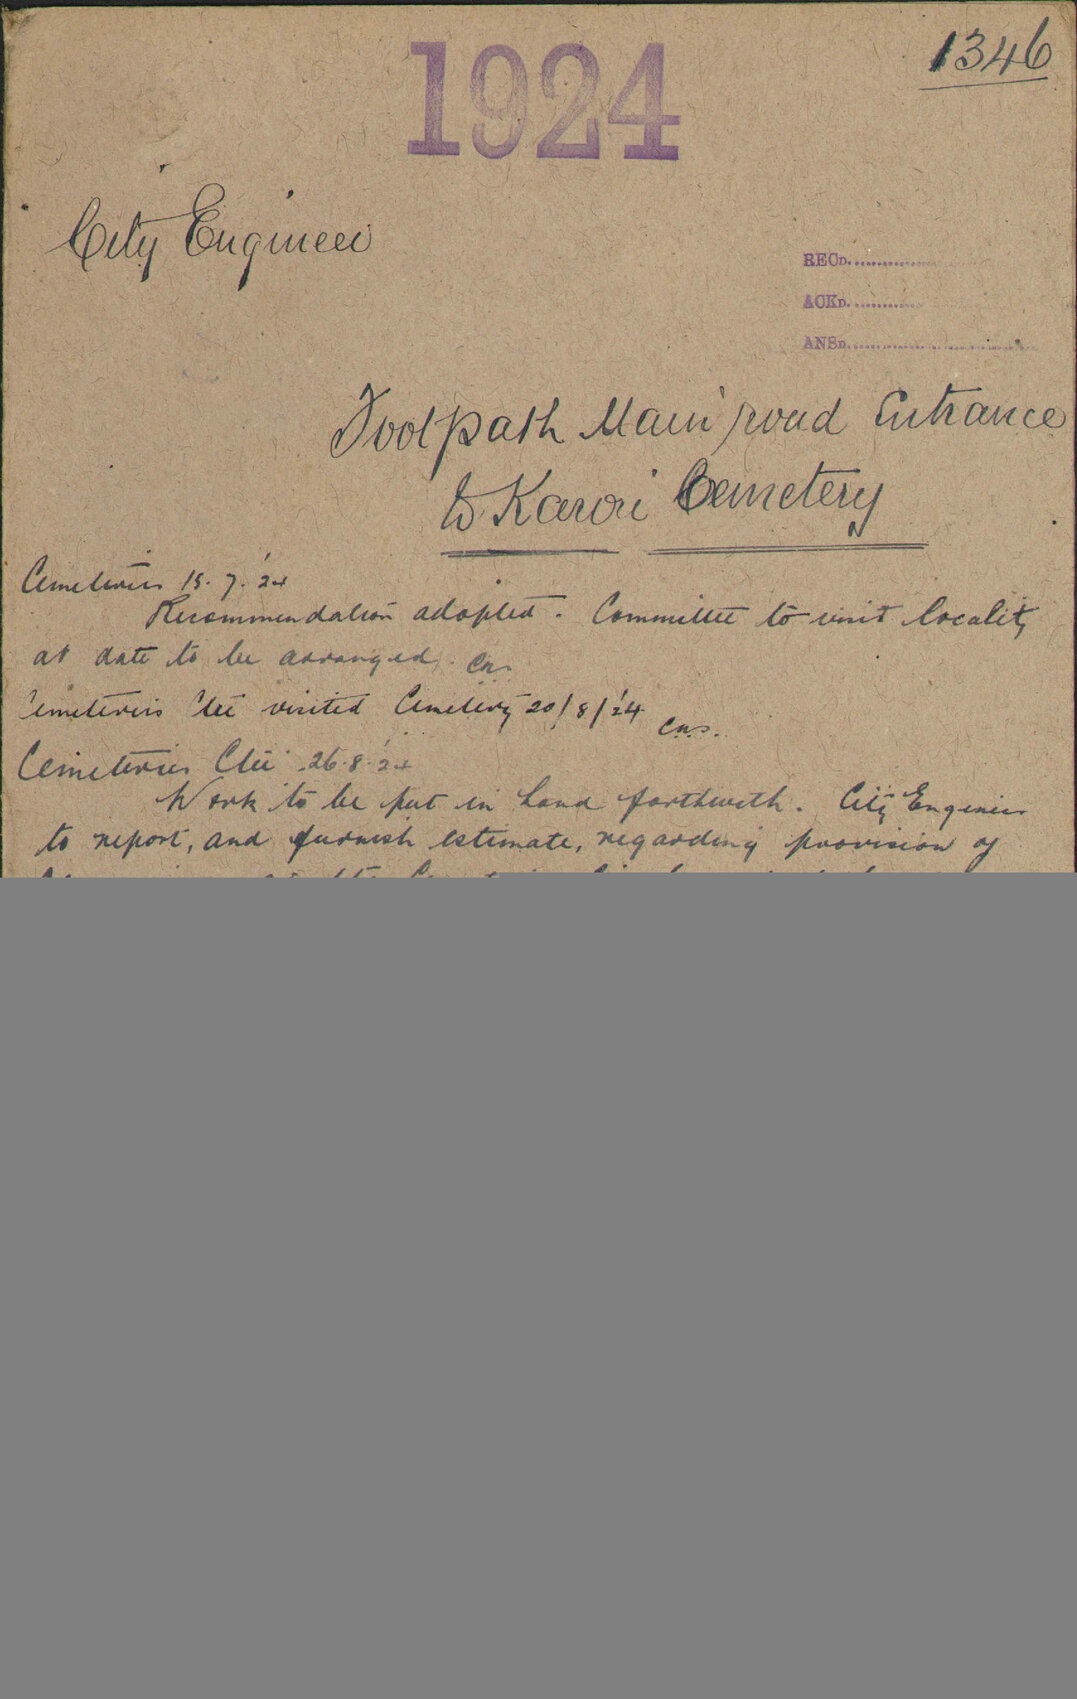 1924
1346
City Engineer
RECD.
ACKD.
ANSD.
Footpath Main road Entrance
to Karori Cemetery
Cemeteries 15.7.'24
Recommendation adopted. Committee to visit locality
at date to be arranged.
Cemeteries Ctee visited Cemetery 20/8/'24
Cemeteries Ctee 26.8.'24
Work to be put in hand forthwith. City Engineer
to report, and furnish estimate, regarding provision of